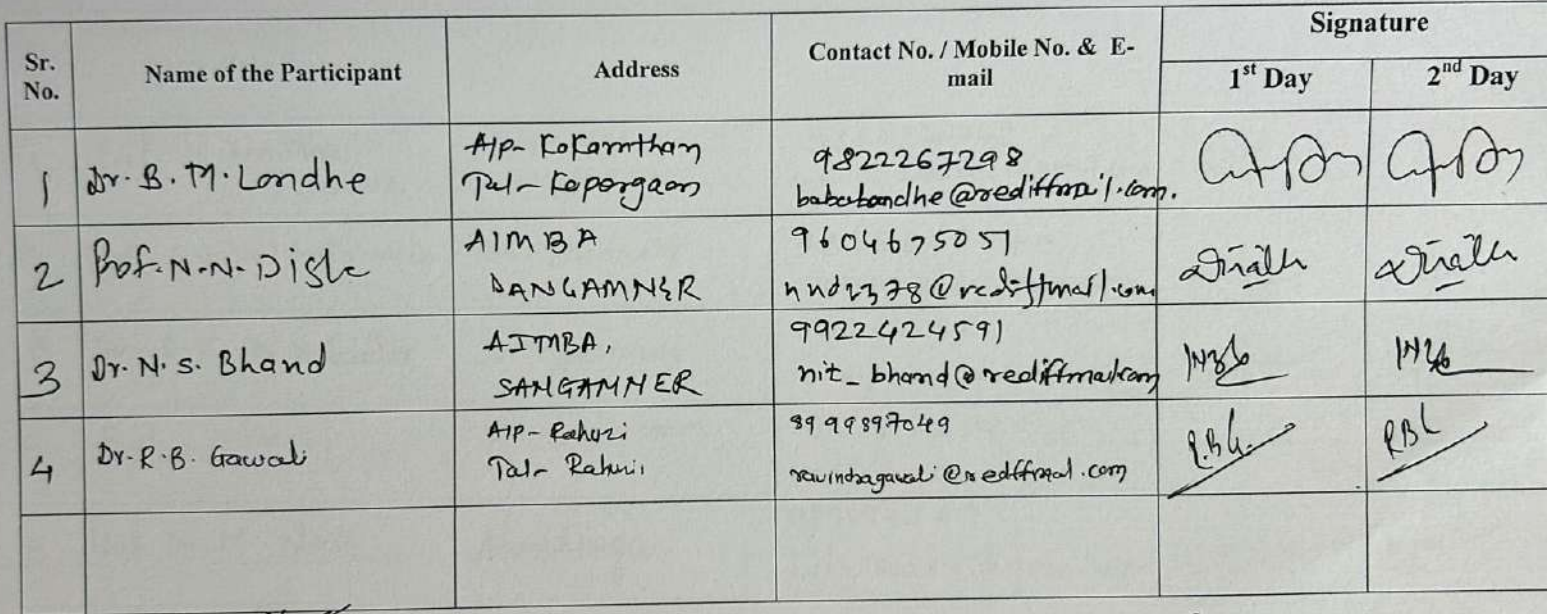 Signature
Sr. No.
Name of the Participant
Address
Contact No. / Mobile No. & E-mail
1st Day
2nd Day
1
Dr. B. M. Londhe
A/P- Kokamthan
Tal- Kopargaon
9822267298
@rediffmail.com.
2
Prof. N. N. Digle
AIMBA
SANGAMNER
9604675051
nnd2378@rediffmail.com
3
Dr. N. S. Bhand
AIMBA,
SANGAMNER
9922424591
nit_bhand@rediffmail.com
4
Dr. R. B. Gawali
A/P- Rahuri
Tal- Rahuri
8999897049
ravindragawali@rediffmail.com
R.B.G.